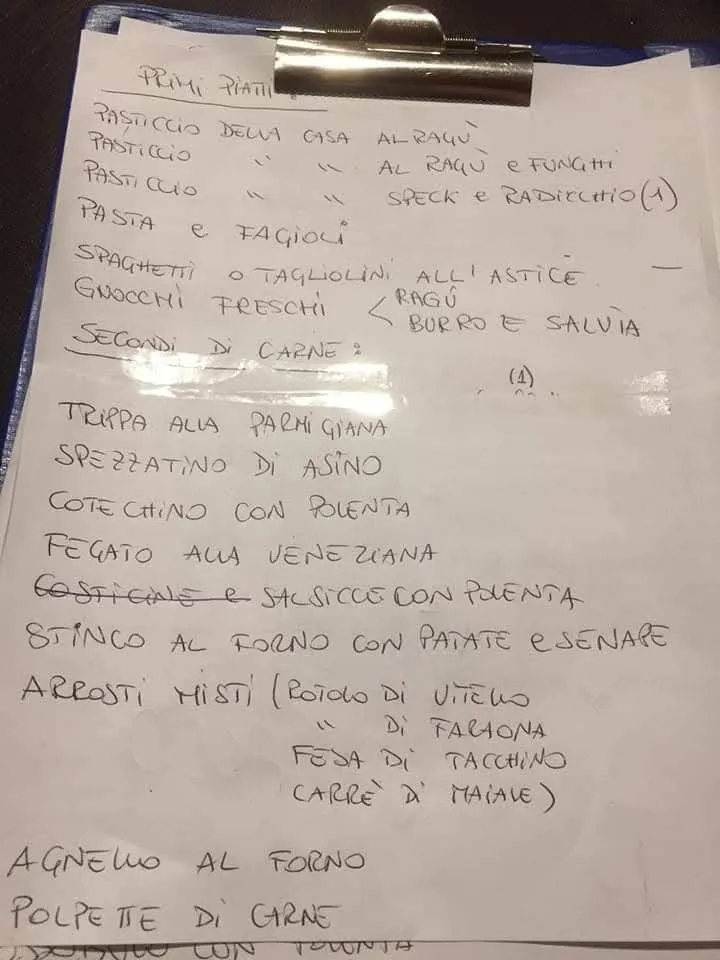 PRIMI PIATTI:
PASTICCIO DELLA CASA AL RAGÙ
PASTICCIO " " AL RAGÙ e FUNGHI
PASTICCIO " " SPECK e RADICCHIO (1)
PASTA e FAGIOLI
SPAGHETTI O TAGLIOLINI ALL'ASTICE
GNOCCHI FRESCHI < RAGÙ
BURRO E SALVIA
SECONDI DI CARNE:
(1)
TRIPPA ALLA PARMIGIANA
SPEZZATINO DI ASINO
COTECHINO CON POLENTA
FEGATO ALLA VENEZIANA
COSTICINE e SALSICCE CON POLENTA
STINCO AL FORNO CON PATATE e SENAPE
ARROSTI MISTI (ROTOLO DI VITELLO
" DI FARAONA
FESA DI TACCHINO
CARRÈ DI MAIALE)
AGNELLO AL FORNO
POLPETTE DI CARNE
CON POLENTA